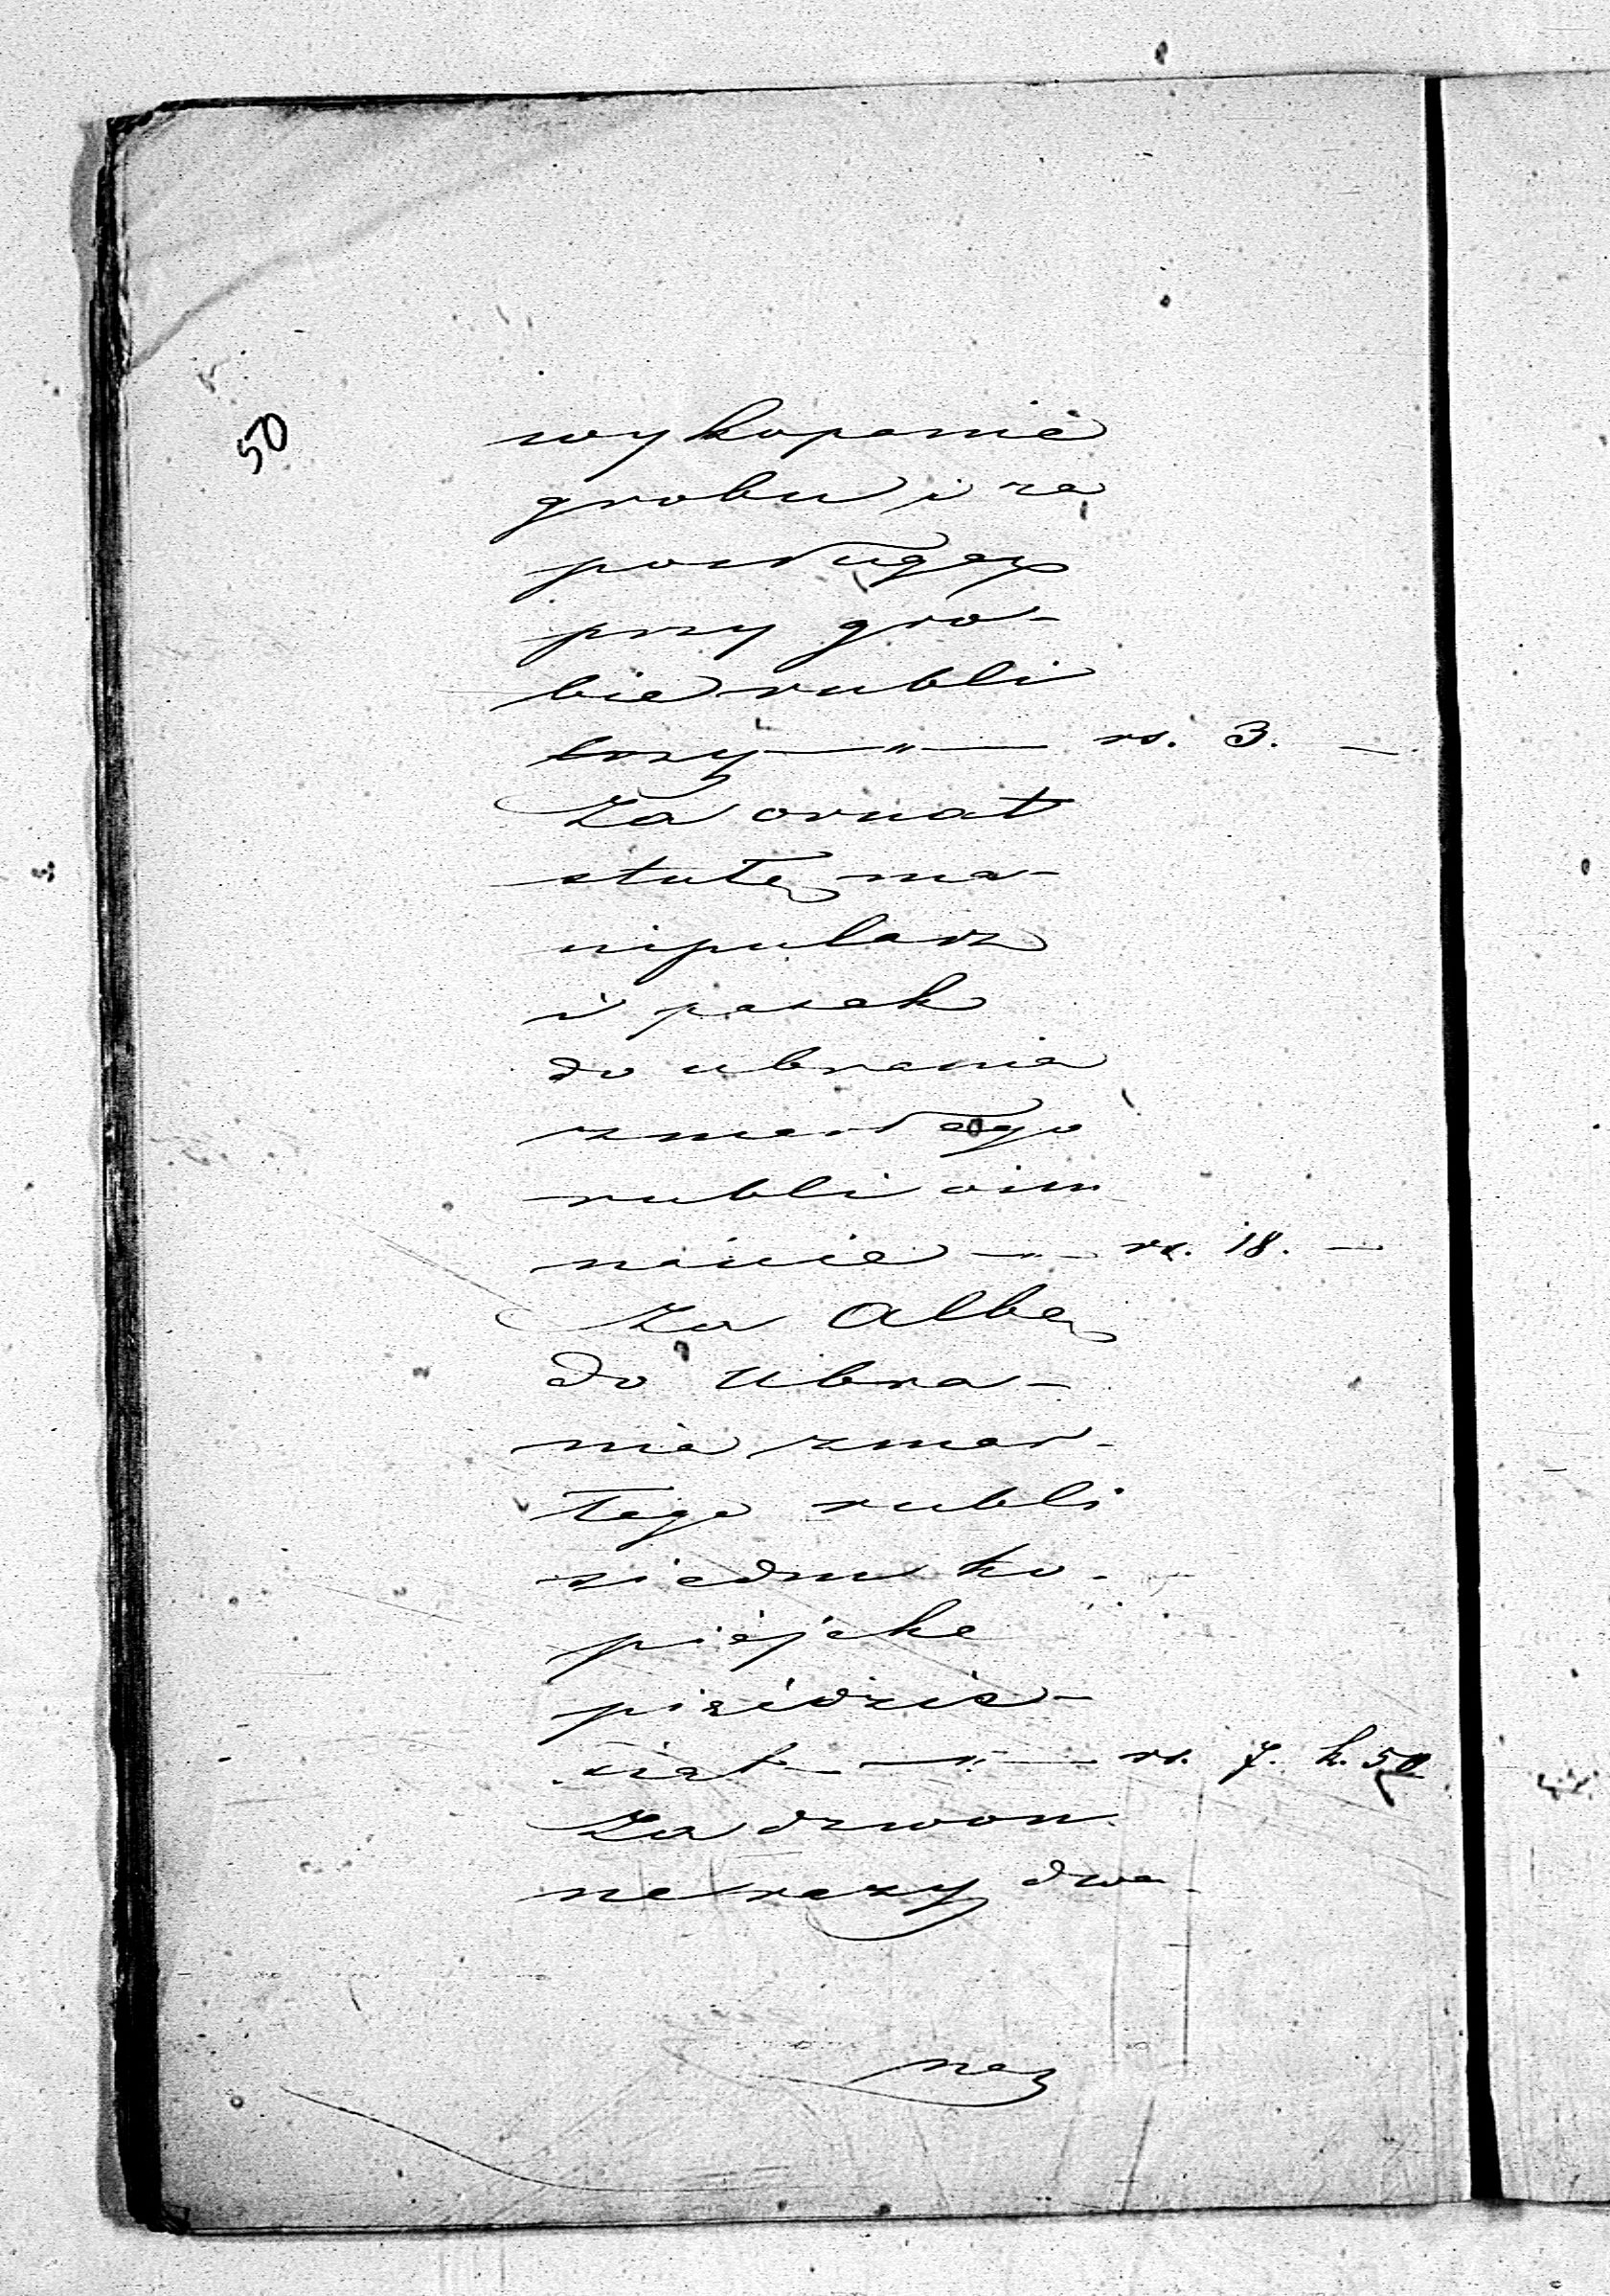 50
wykopanie
grobu i za
posługę
przy gro-
bie rubli
trzy —"— rs. 3. —
Za ornat
stułę ma-
nipularz
i pasek
do ubrania
zmarłego
rubli oim
náscie —"— rs. 18. —
Za Albę
do ubra-
nia zmar-
łego rubli
siedm ko-
piéjek
pięidzie-
siąt —"— rs. 7. k. 50
Za dzwon-
ne razy dwa-
na